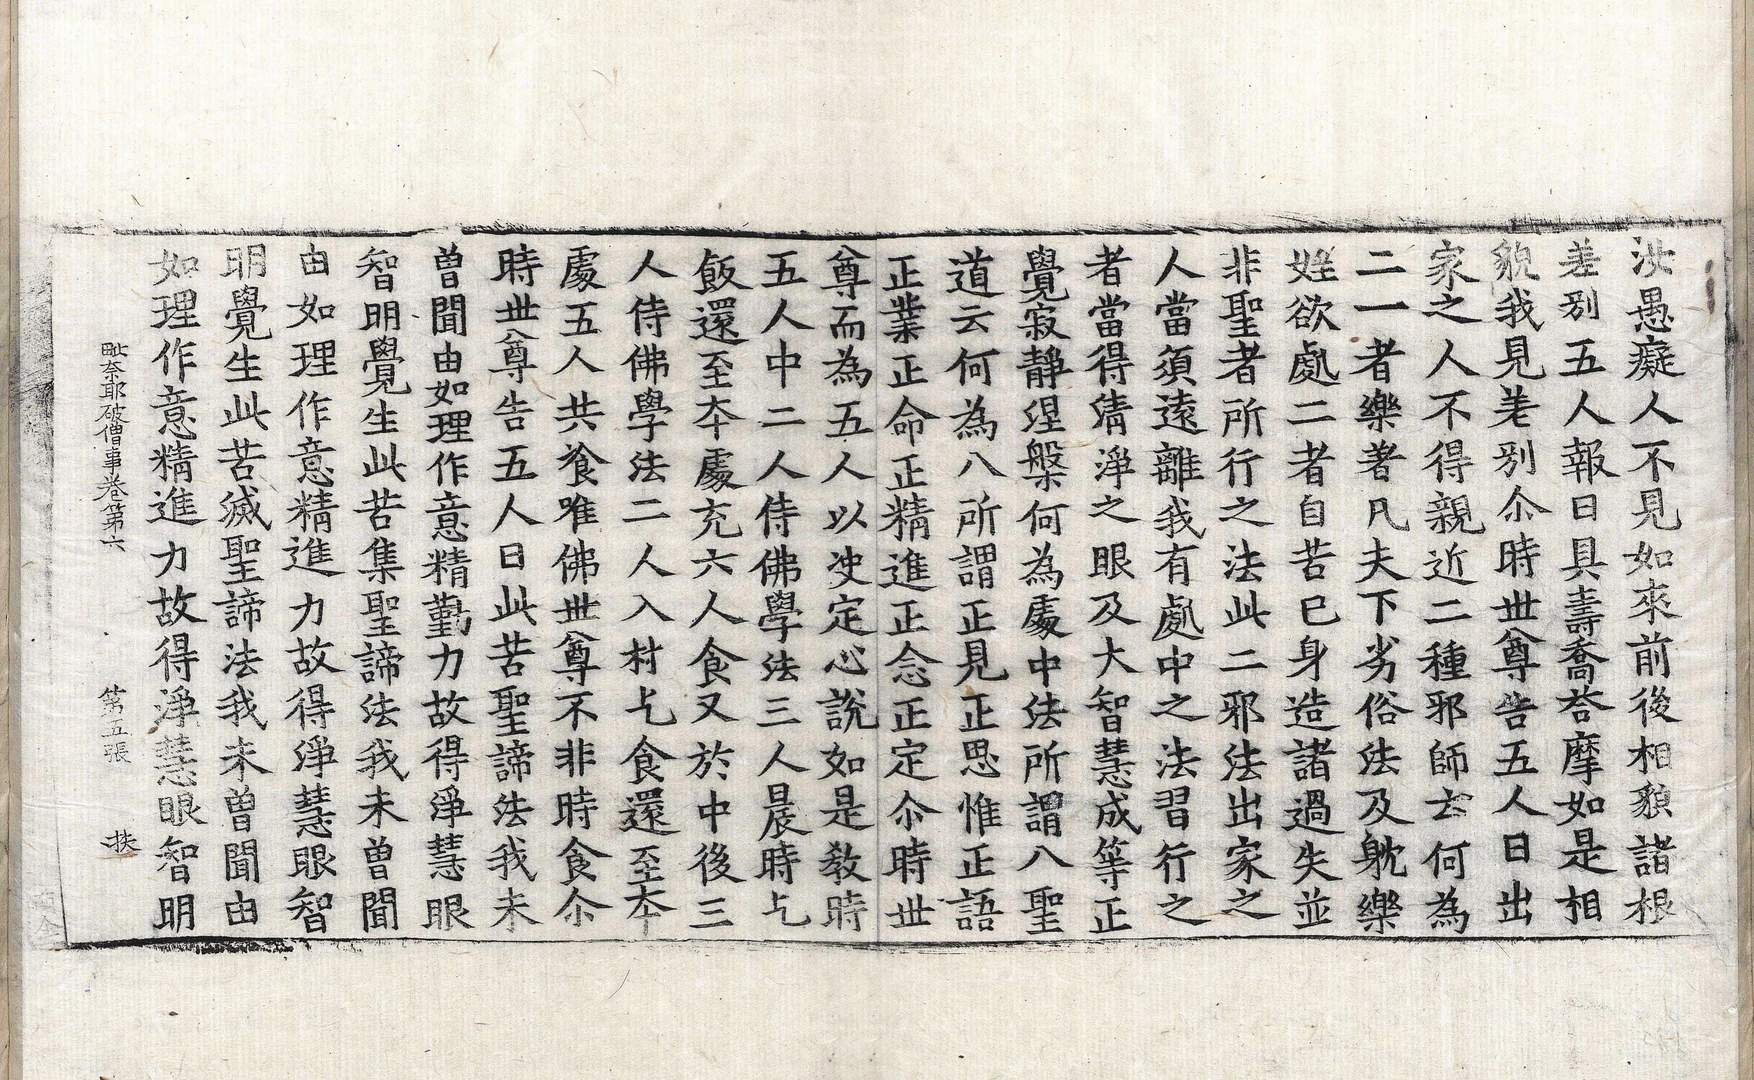 汝愚癡人不見如來前後相貌諸根
差別五人報曰具壽喬荅摩如是相
貌我見差別尒時世尊告五人曰出
家之人不得親近二種邪師云何為
二一者樂著凡夫下劣俗法及躭樂
婬欲處二者自苦己身造諸過失並
非聖者所行之法此二邪法出家之
人當須遠離我有處中之法習行之
者當得清淨之眼及大智慧成等正
覺寂靜涅槃何為處中法所謂八聖
道云何為八所謂正見正思惟正語
正業正命正精進正念正定尒時世
尊而為五人以决定心說如是教時
五人中二人侍佛學法三人晨時乞
飯還至本處充六人食又於中後三
人侍佛學法二人入村乞食還至本
處五人共飡唯佛世尊不非時食尒
時世尊告五人曰此苦聖諦法我未
曾聞由如理作意精勤力故得淨慧眼
智明覺生此苦集聖諦法我未曾聞
由如理作意精進力故得淨慧眼智
明覺生此苦滅聖諦法我未曾聞由
如理作意精進力故得淨慧眼智明
毗奈耶破僧事卷第六 第五張 挾